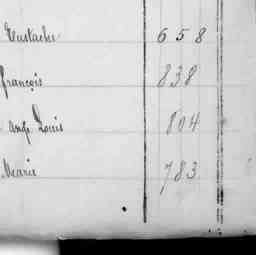 Eustache 658
françois 838
ange Louis 804
Marie 783